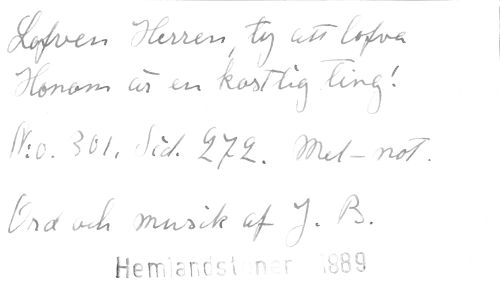 Lofven Herren, ty att lofva
Honom är en kostlig ting!
N:o. 301. Sid. 272. Mel-not.
Ord och musik af J. B.
Hemlandstoner 1889